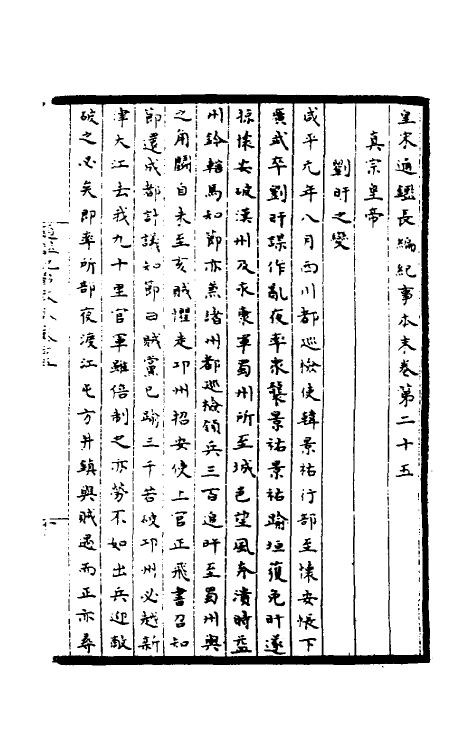 皇宋通鑑長編紀事本末卷第二十五
真宗皇帝
劉旰之變
咸平元年八月西川都巡檢使韓景祐行部至懷安帳下
廣武卒劉旰謀作亂夜率衆襲景祐景祐踰垣獲免旰遂
掠懷安破漢州及永康軍蜀州所至城邑望風奔潰時益
州鈐轄馬知節亦兼諸州都巡檢領兵三百追旰至蜀州與
之角鬭自未至亥賊懼走邛州招安使上官正飛書召知
節還成都計議知節曰賊黨已踰三千若破邛州必越新
津大江去我九十里官軍雖倍制之亦勞不如出兵迎敵
破之必矣即率所部夜渡江屯方井鎮與賊遇而正亦尋